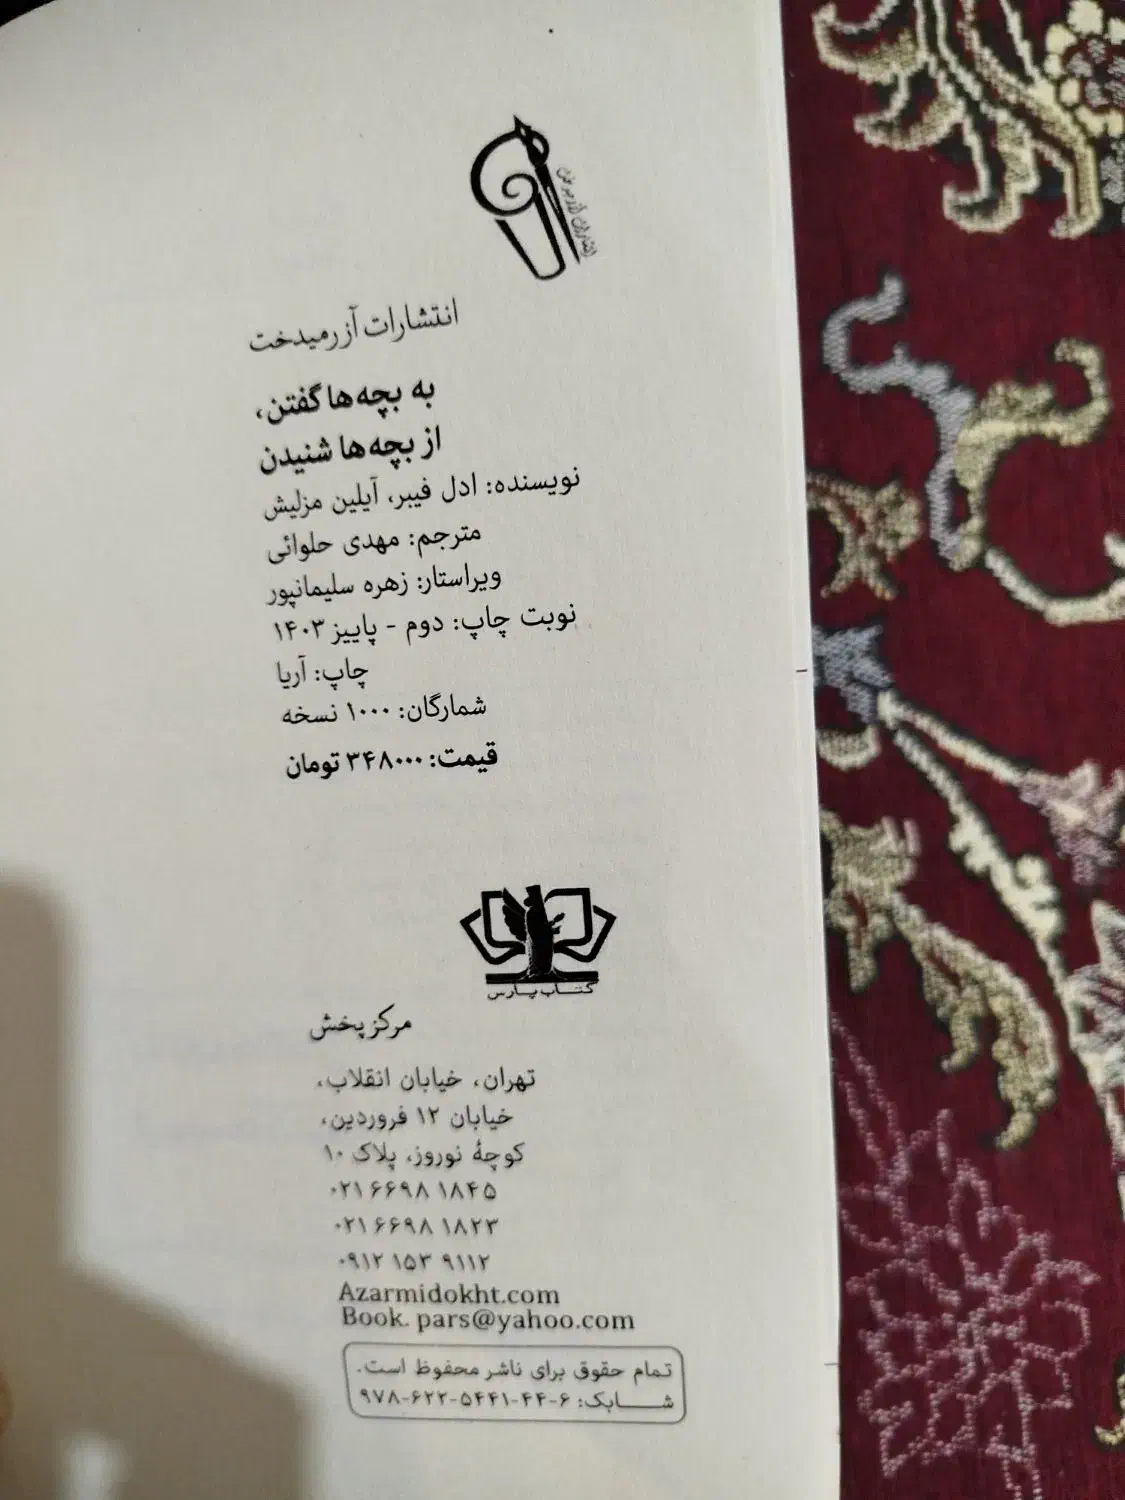 انتشارات آزرمیدخت
انتشارات آزرمیدخت
به بچه‌ها گفتن،
از بچه‌ها شنیدن
نویسنده: ادل فیبر، آیلین مزلیش
مترجم: مهدی حلوائی
ویراستار: زهره سلیمانپور
نوبت چاپ: دوم - پاییز ۱۴۰۳
چاپ: آریا
شمارگان: ۱۰۰۰ نسخه
قیمت: ۳۴۸۰۰۰ تومان
کتاب پارس
مرکز پخش
تهران، خیابان انقلاب،
خیابان ۱۲ فروردین،
کوچهٔ نوروز، پلاک ۱۰
۰۲۱ ۶۶۹۸ ۱۸۴۵
۰۲۱ ۶۶۹۸ ۱۸۲۳
۰۹۱۲ ۱۵۳ ۹۱۱۲
Azarmidokht.com
Book. pars@yahoo.com
تمام حقوق برای ناشر محفوظ است.
شابک: ۹۷۸-۶۲۲-۵۴۴۱-۴۴-۶